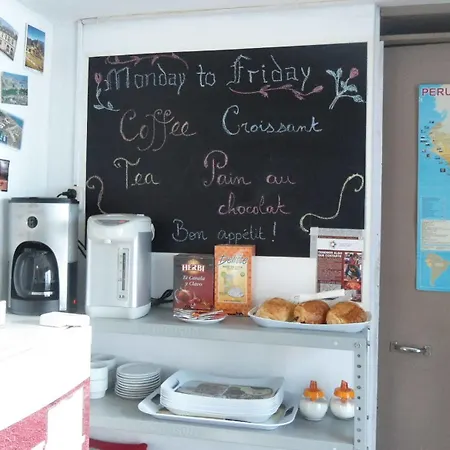 Monday to Friday
Coffee Croissant
Tea Pain au
chocolat
Bon appétit !
HERBI
Té Canela
y Clavo
PERU